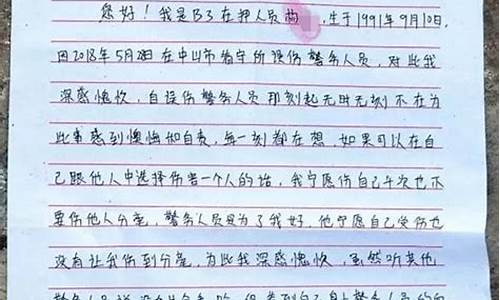 您好！我是B3在押人员曲 ，生于1991年9月10日.
因2018年5月28日在中山市看守所误伤警务人员，对此我
深感愧疚，自误伤警务人员那刻起无时无刻不在为
此事感到懊悔如自责，每一刻都在想，如果可以在自
己跟他人中选择伤害一个人的话，我宁愿伤自己千次也不
要伤他人分毫，警务人员是为了我好，他宁愿自己受伤也
没有让我伤到分毫，为此我深感愧疚，虽然听其他
警务人员说没有什么大事